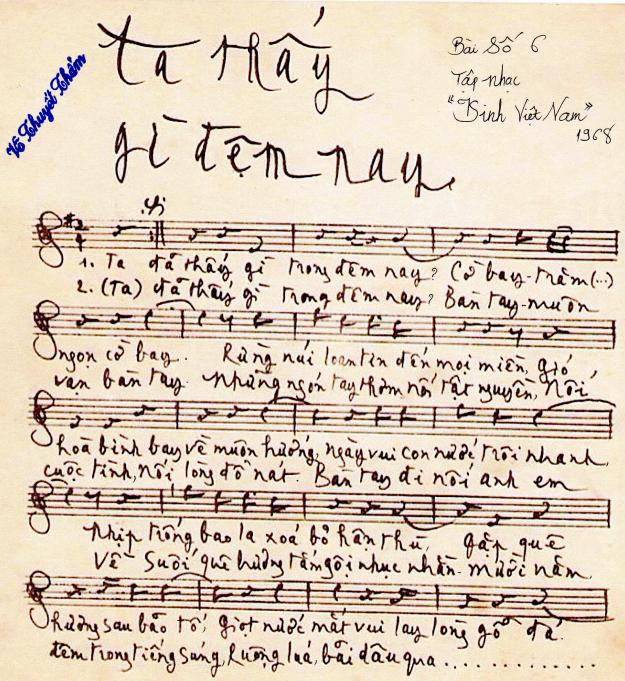 Ta thấy
gì đêm nay.
Bài Số 6
Tập nhạc
"Kinh Việt Nam"
1968
Võ Thuyết Thẩm
1. Ta đã thấy gì trong đêm nay? Cờ bay trăm (...)
2. (Ta) đã thấy gì trong đêm nay? Bàn tay muôn
ngọn cờ bay. Rừng núi loan tin đến mọi miền, gió
vạn bàn tay. Những ngón tay thơm nối tật nguyền, Nối
hoà bình bay về muôn hướng, ngày vui con nước trôi nhanh,
cuộc tình, nối lòng đổ nát. Bàn tay đi nối anh em
Nhịp trống bao la xoá bỏ hận thù, gặp quê
Về suối quê hương tắm gội nhục nhằn. Mười năm
hương sau bão tố, giọt nước mắt vui lay lòng gỗ đá.
đêm trong tiếng súng, Ruộng lúa, bãi dâu qua . . . . . . . . . . . . .